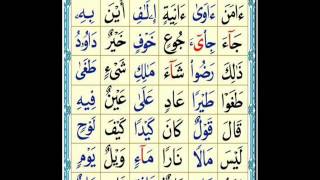 ءَامَنَ ءَاوَىٰ ءَانِيَةٍ إِۦلَٰفِ أَيْنَ بِهِۦ
جَآءَ جِاْىٓءَ جُوعٍ خَوْفٍ خَيْرٌ دَاوُۥدُ
ذَٰلِكَ رَضُواْ شَآءَ مَٰلِكِ شَىْءٍ طَغَىٰ
طَغَوْاْ طَيْرًا عَادٍ عَلَىٰ عَيْنٌ فِيهِ
قَالَ قَوْلٌ كَانَ كَيْدًا كَيْفَ لَوْحٍ
لَيْسَ مَالًا نَارًا مَآءٍ وَيْلٌ يَوْمٍ